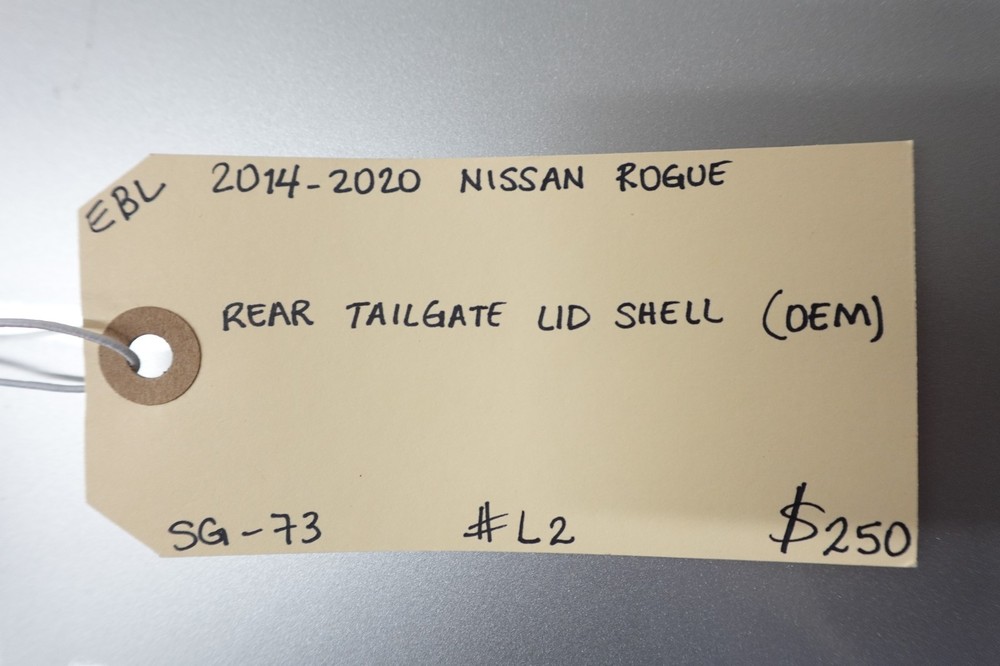 EBL
2014-2020 NISSAN ROGUE
REAR TAILGATE LID SHELL (OEM)
SG-73 #L2 $250